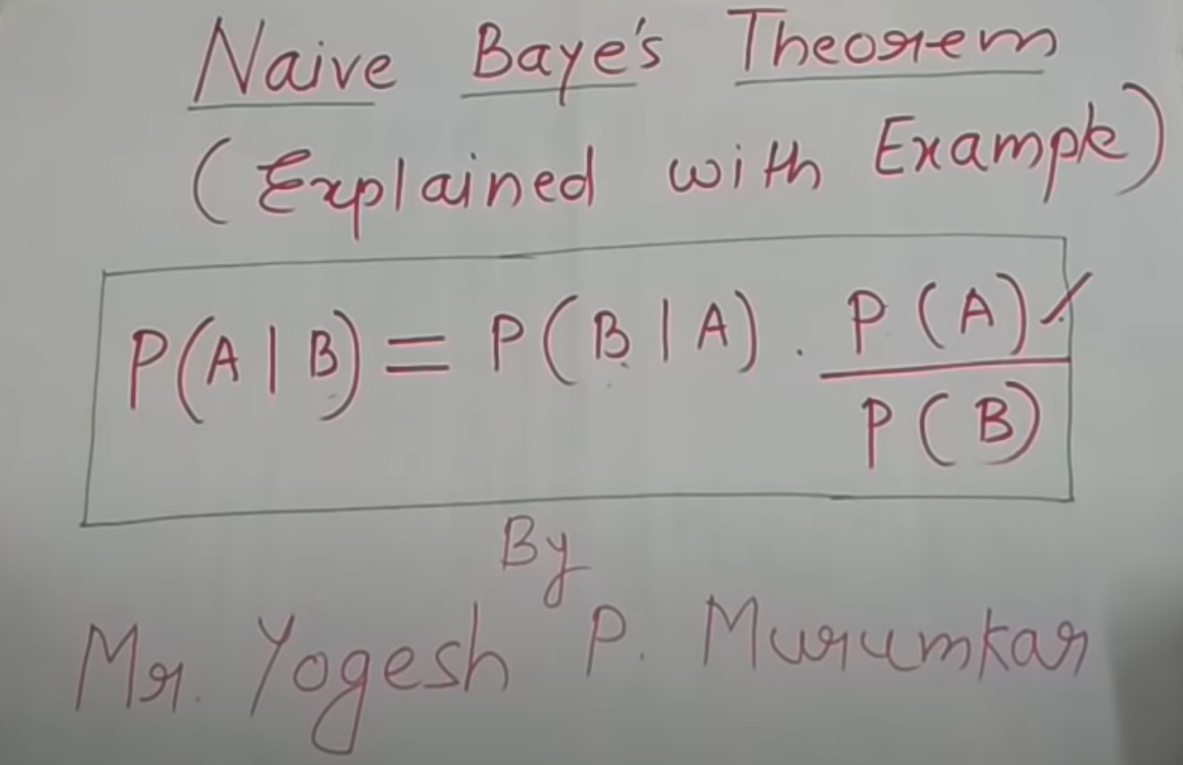 Naive Baye's Theorem
(Explained with Example)
P(A|B) = P(B|A) . P(A) / P(B)
By
Mr. Yogesh P. Murumkar